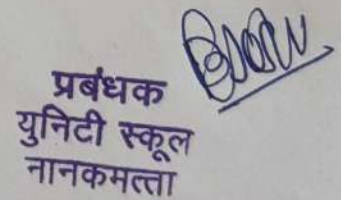 प्रबंधक
युनिटी स्कूल
नानकमत्ता